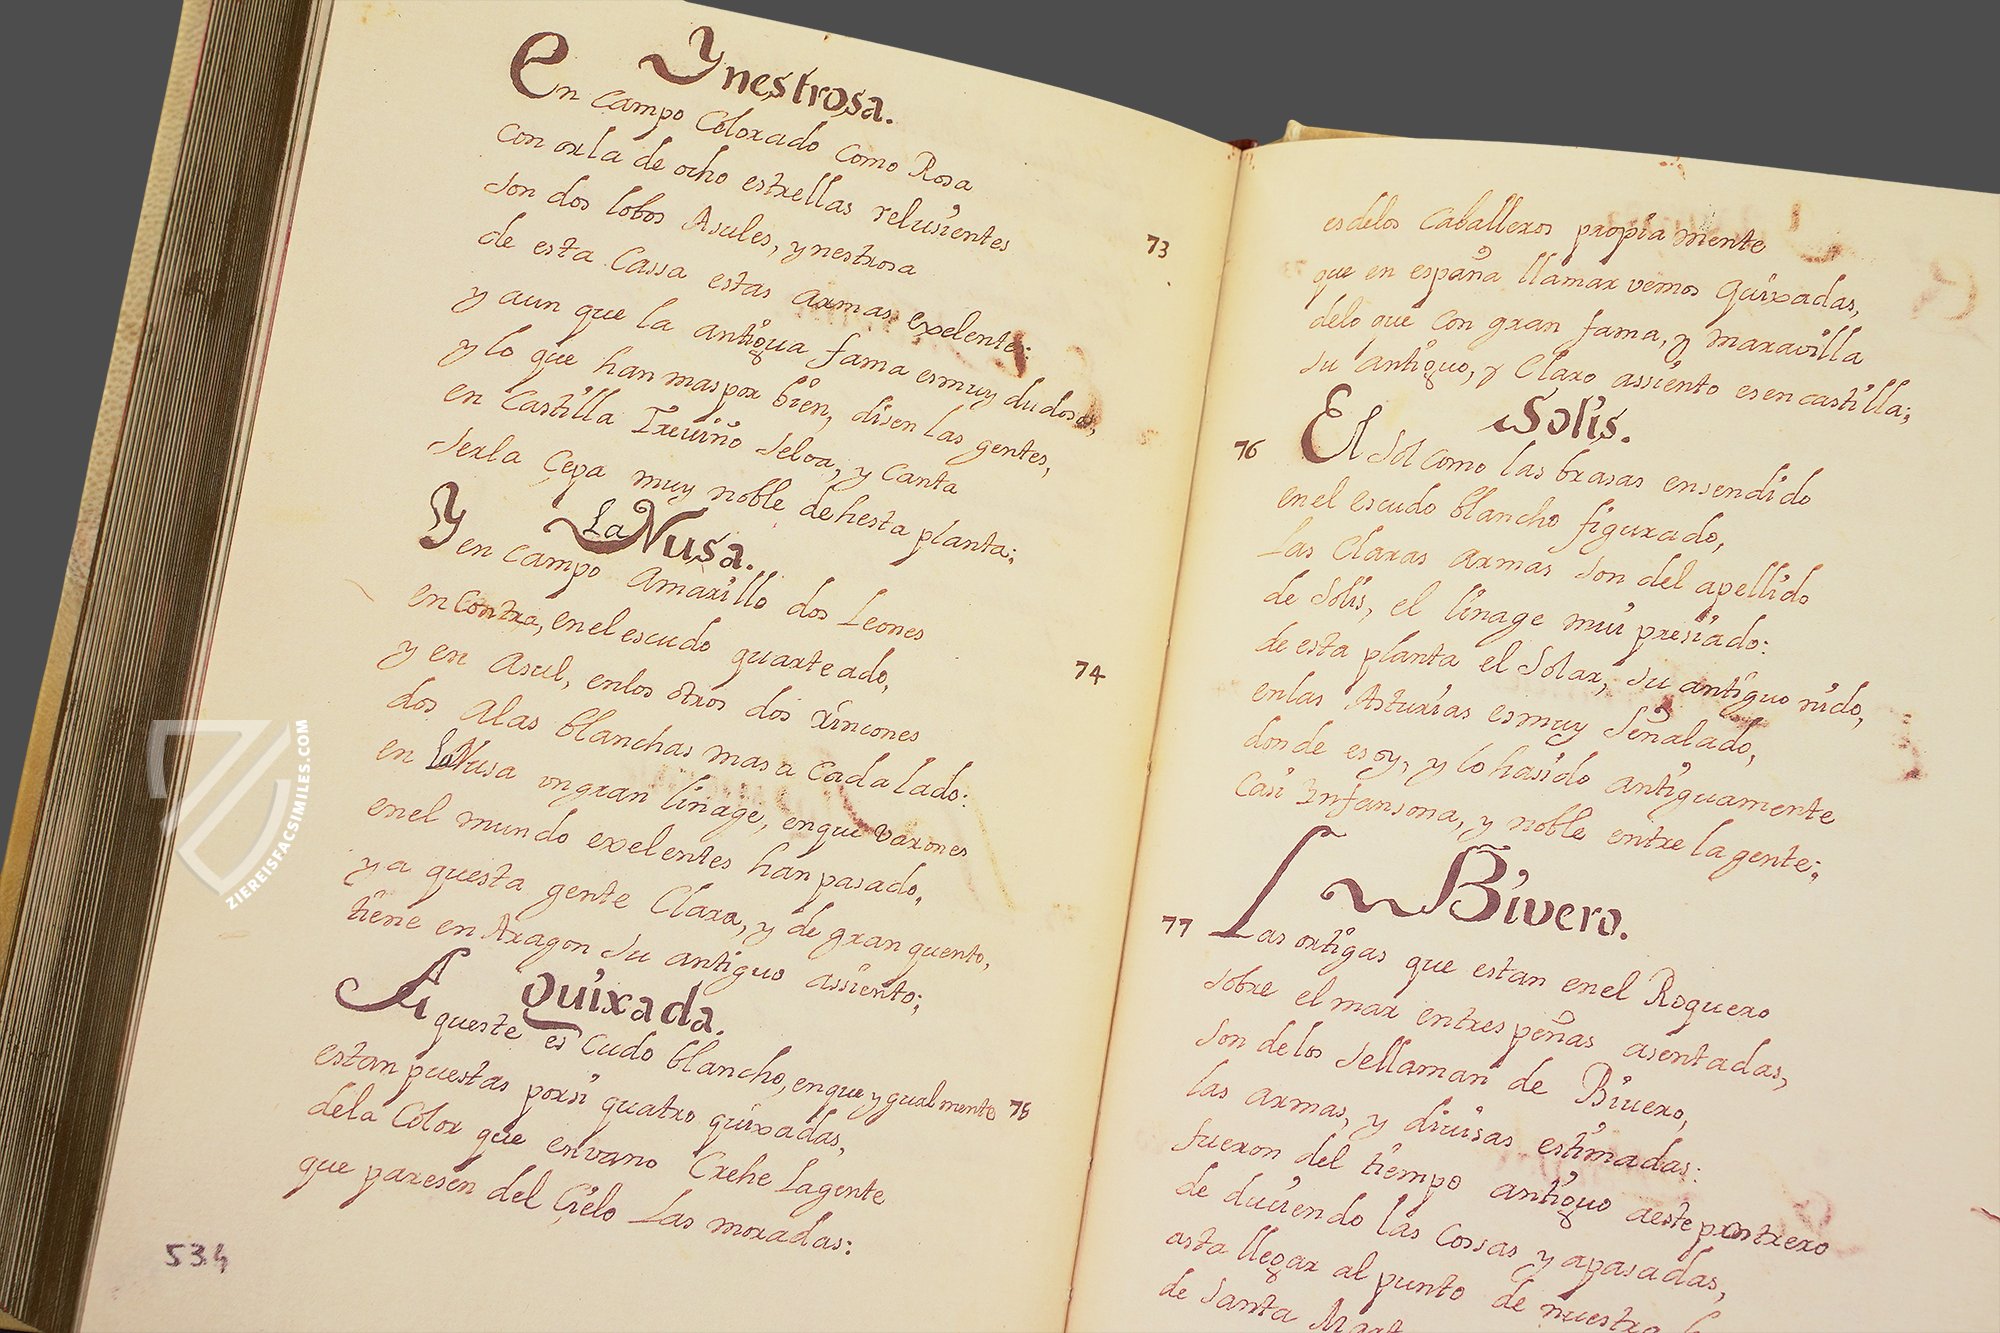 Ynestrosa.
En campo Colorado como Rosa
con orla de ocho estrellas relusientes
son dos lobos Asules, ynestrosa
de esta Cassa estas armas exelentes:
y aun que la antigua fama es muy dudosa,
y lo que han mas por bien, disen las gentes,
en Castilla Treuiño se loa, y canta
ser la Çepa muy noble de hesta planta;
73
LaNusa.
Y en campo Amarillo dos Leones
en contra, en el escudo quarteado,
y en Asul, en los otros dos Rincones
dos Alas blanchas mas a cada lado:
en LaNusa vn gran linage, en que varones
en el mundo exelentes han pasado,
y a questa gente Clara, y de gran quento,
tiene en Aragon su antiguo assiento;
74
Quixada.
Aqueste escudo blancho, en que ygualmente
estan puestas por si quatro quixadas,
de la Color que en vano Crehe La gente
que paresen del Çielo Las moradas:
75
534
es delos Caballeros propia mente
que en españa llamar vemos Quixadas,
delo que con gran fama, y maravilla
su antiguo, y Claro assiento es en castilla;
Solis.
76
El Sol como las brasas ensendido
en el escudo blancho figurado,
Las Claras armas son del apellido
de Solis, el linage mui presiado:
de esta planta el Solar, su antiguo nido,
en las Asturias es muy Señalado,
donde es oy, y lo ha sido antiguamente
Casi Infansona, y noble entre la gente;
Bivero.
77
Las ortigas que estan en el Roquero
sobre el mar entres peñas asentadas,
son de los se llaman de Biuero,
las armas, y diuisas estimadas:
fueron del tiempo antiguo aeste postrero
de duuiendo las Cossas y apasadas,
asta llegar al punto de nuestra
de Santa
ZIEREISFACSIMILES.COM